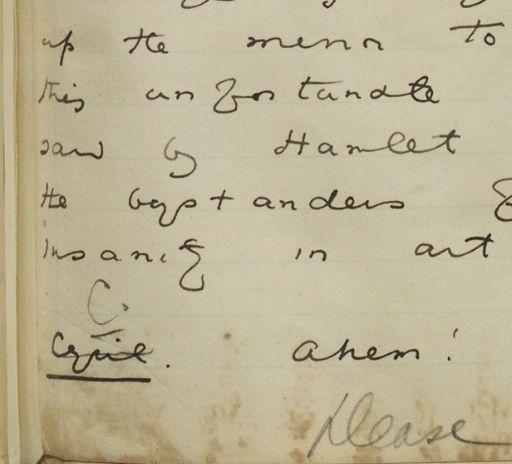 up the mirror to
this unfortunate
said by Hamlet
the bystanders
insanity in art
C.
Cyril. Ahem!
Please